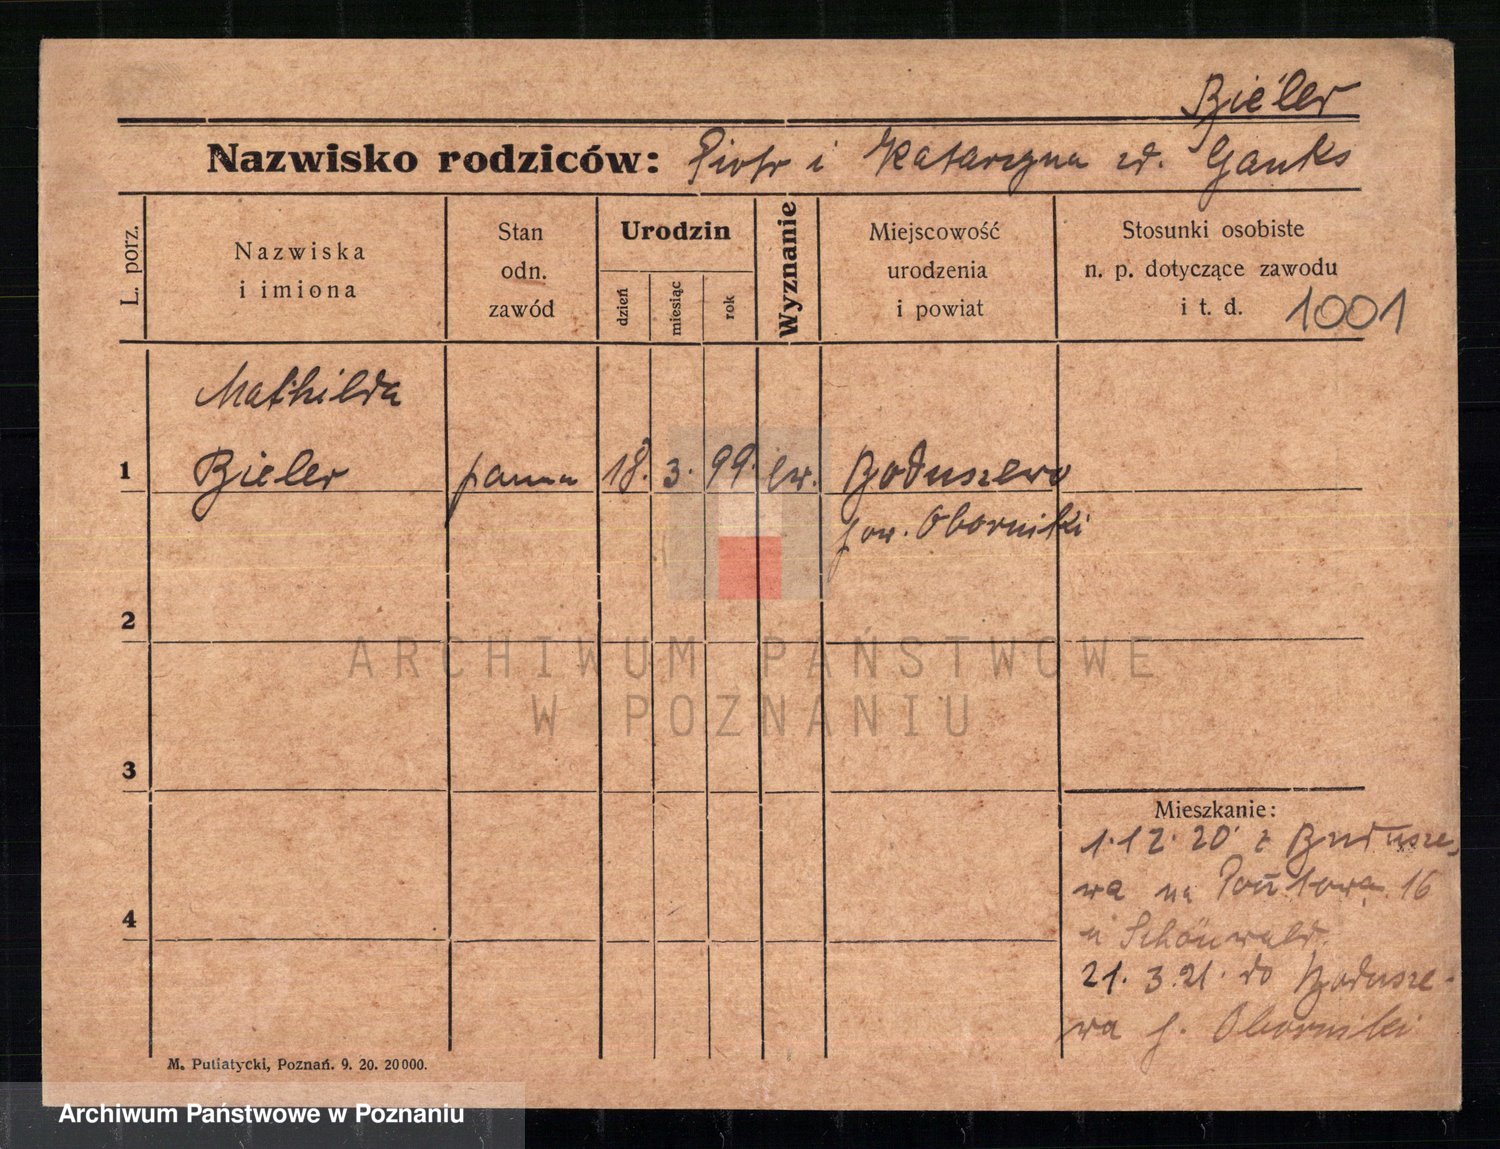 Bieler
Nazwisko rodziców: Piotr i Katarzyna zd. Ganks
L. porz.
Nazwiska
i imiona
Stan
odn.
zawód
Urodzin
dzień
miesiąc
rok
Wyznanie
Miejscowość
urodzenia
i powiat
Stosunki osobiste
n. p. dotyczące zawodu
i t. d.
1001
Mathilda
1 Bieler panna 18. 3. 99. ew. Boduszewo
pow. Oborniki
2
3
4
ARCHIWUM PAŃSTWOWE
W POZNANIU
Mieszkanie:
1.12.20 z Budusze,
wa na 16
u Schönwald.
21.3.21. do Bodusze-
wa p. Oborniki
M. Putiatycki, Poznań. 9. 20. 20000.
Archiwum Państwowe w Poznaniu